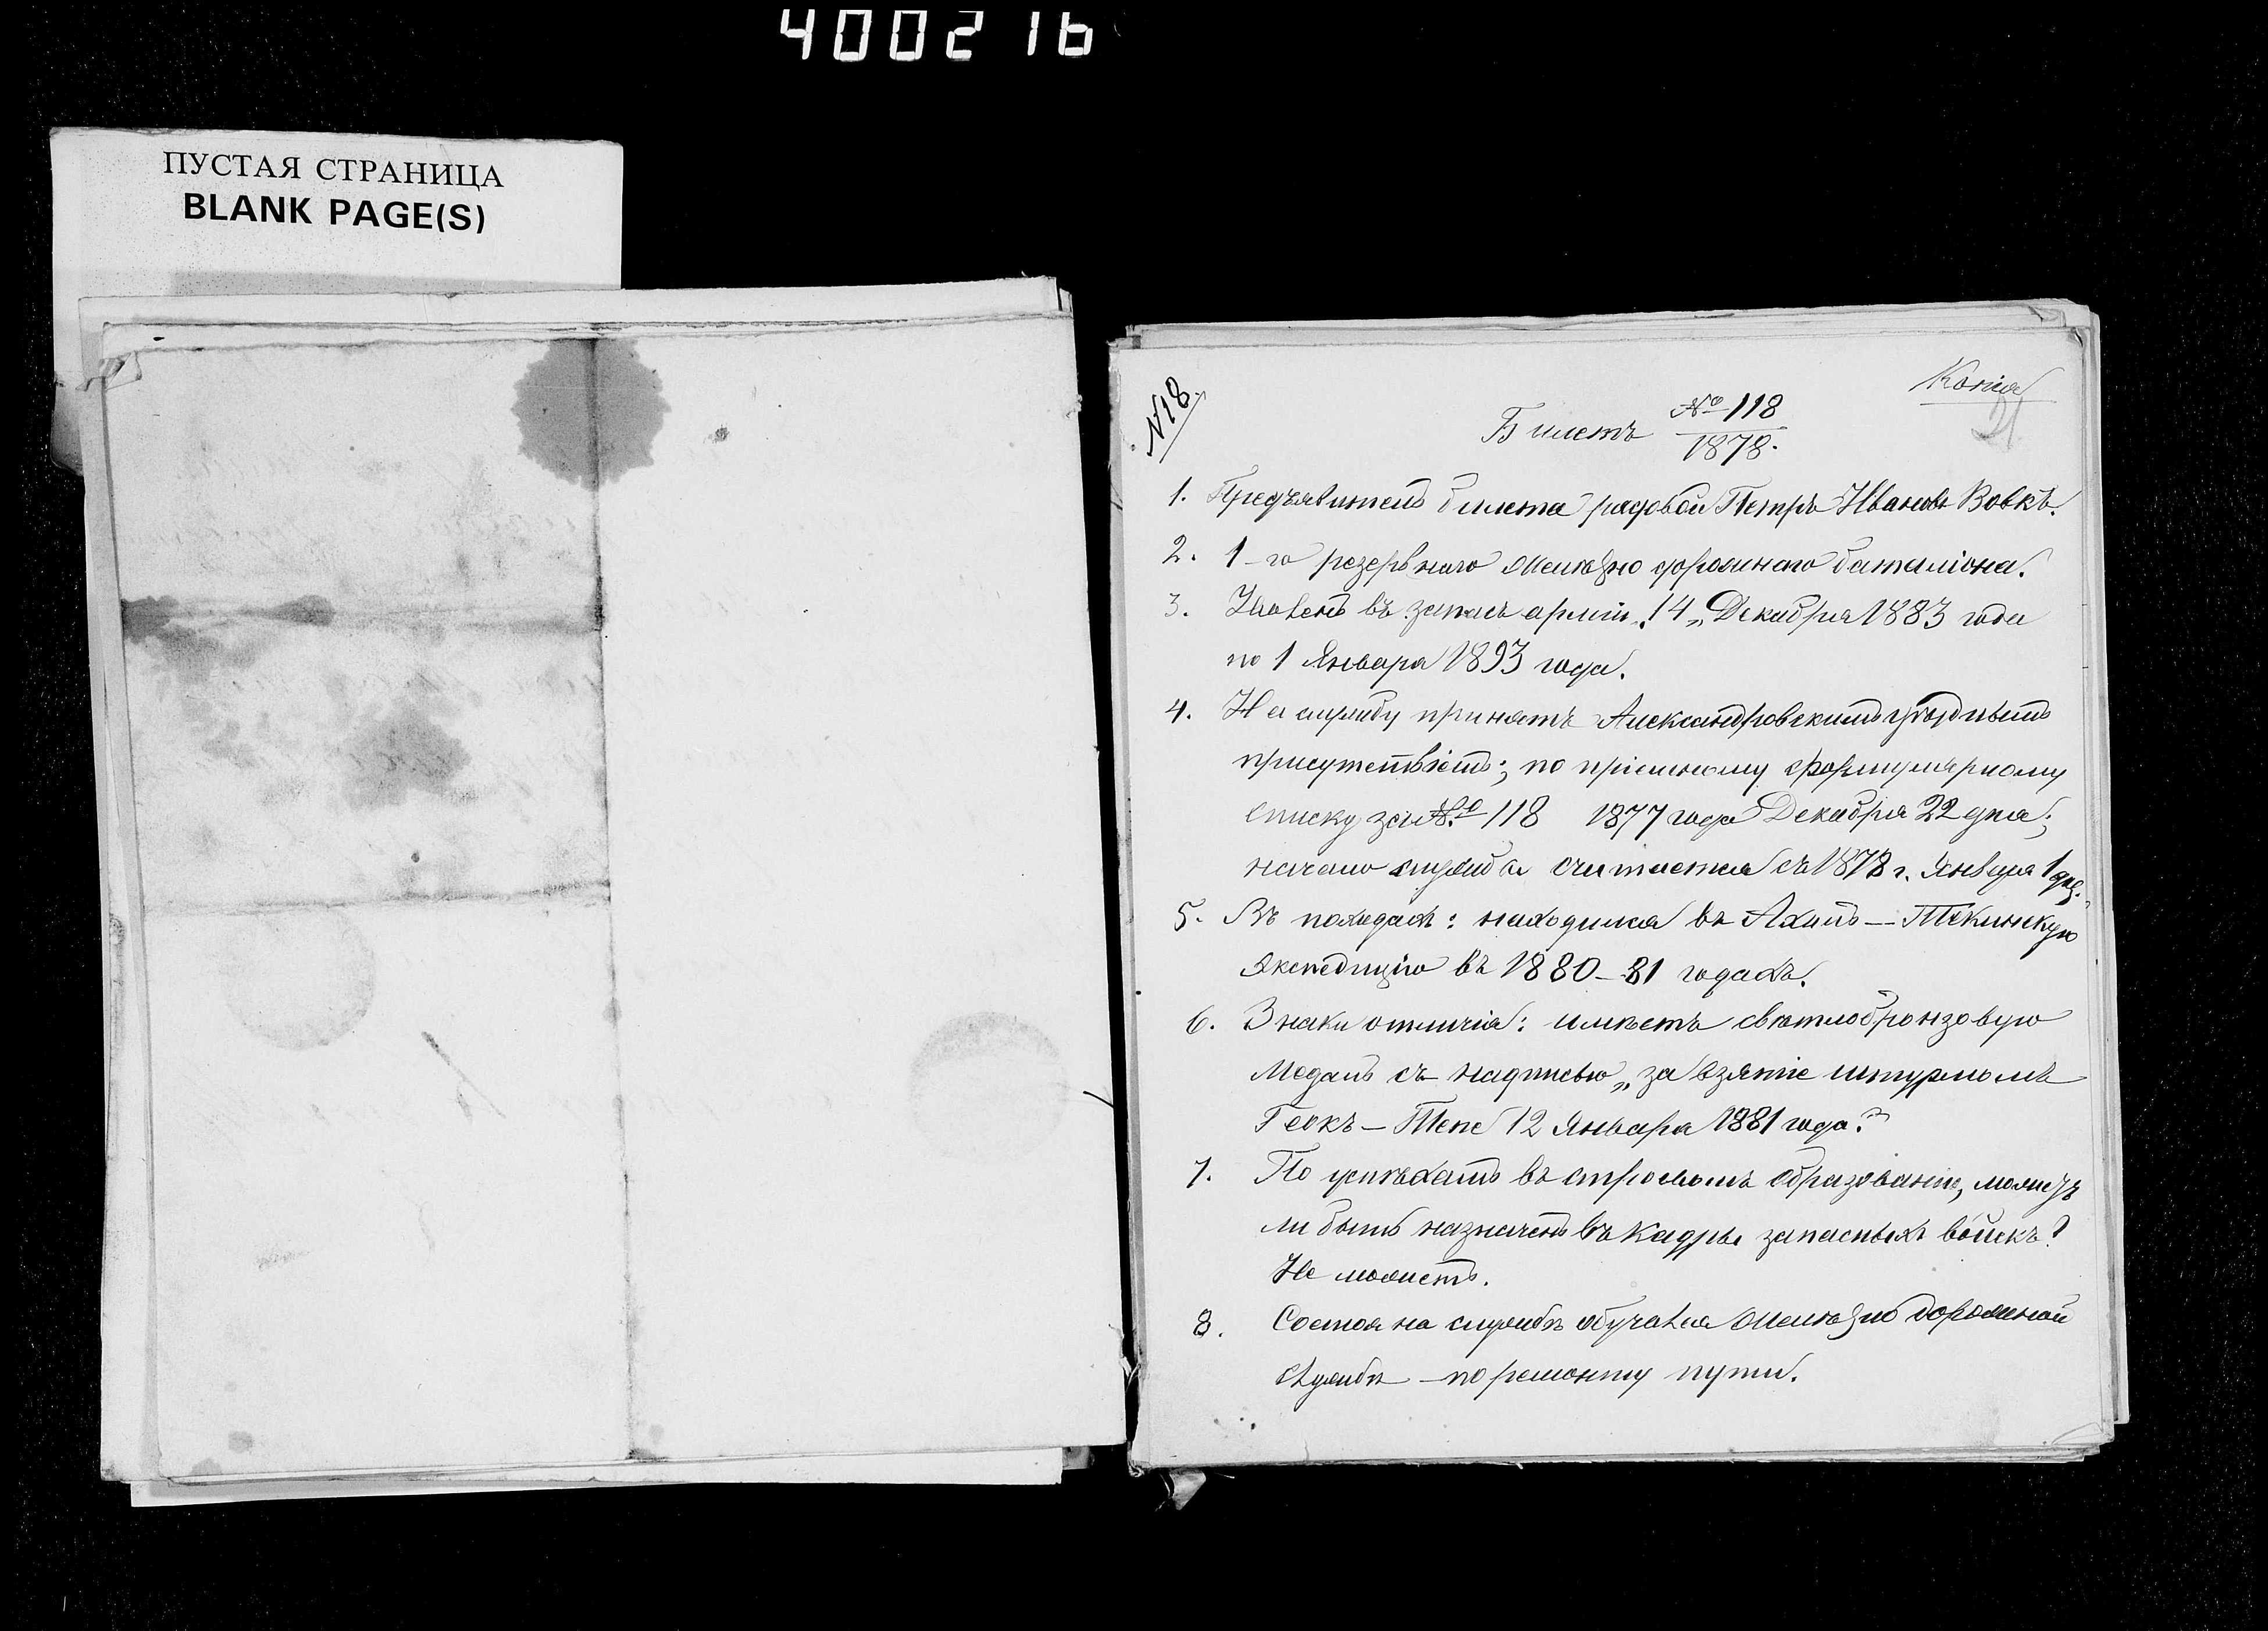 4002 16
ПУСТАЯ СТРАНИЦА
BLANK PAGE(S)
N18.
Копія
21
Билетъ №118
1878.
1. Предъявитель билета рядовой Петръ Ивановъ Вовкъ.
2. 1-го резервнаго желѣзно дорожнаго баталіона.
3. Уволенъ въ запасъ арміи „14„ Декабря 1883 года
по 1 Января 1893 года.
4. На службу принятъ Александровскимъ уѣзднымъ
присутствіемъ; по пріемному формулярному
списку за №118 1877 года Декабря 22 дня;
начало службы считается съ 1878 г. Января 1 дня.
5. Въ походахъ: находился въ Ахалъ-Текинскую
экспедицію въ 1880-81 годахъ.
6. Знаки отличія: имѣетъ свѣтлобронзовую
медаль съ надписью „за взятіе штурмомъ
Геокъ-Тепе 12 Января 1881 года."
7. По успѣхамъ въ строевомъ образованіи, можетъ
ли быть назначенъ въ кадры запасныхъ войскъ?
Не можетъ.
8. Состоя на службѣ обучался желѣзно дорожной
службѣ - по ремонту пути.